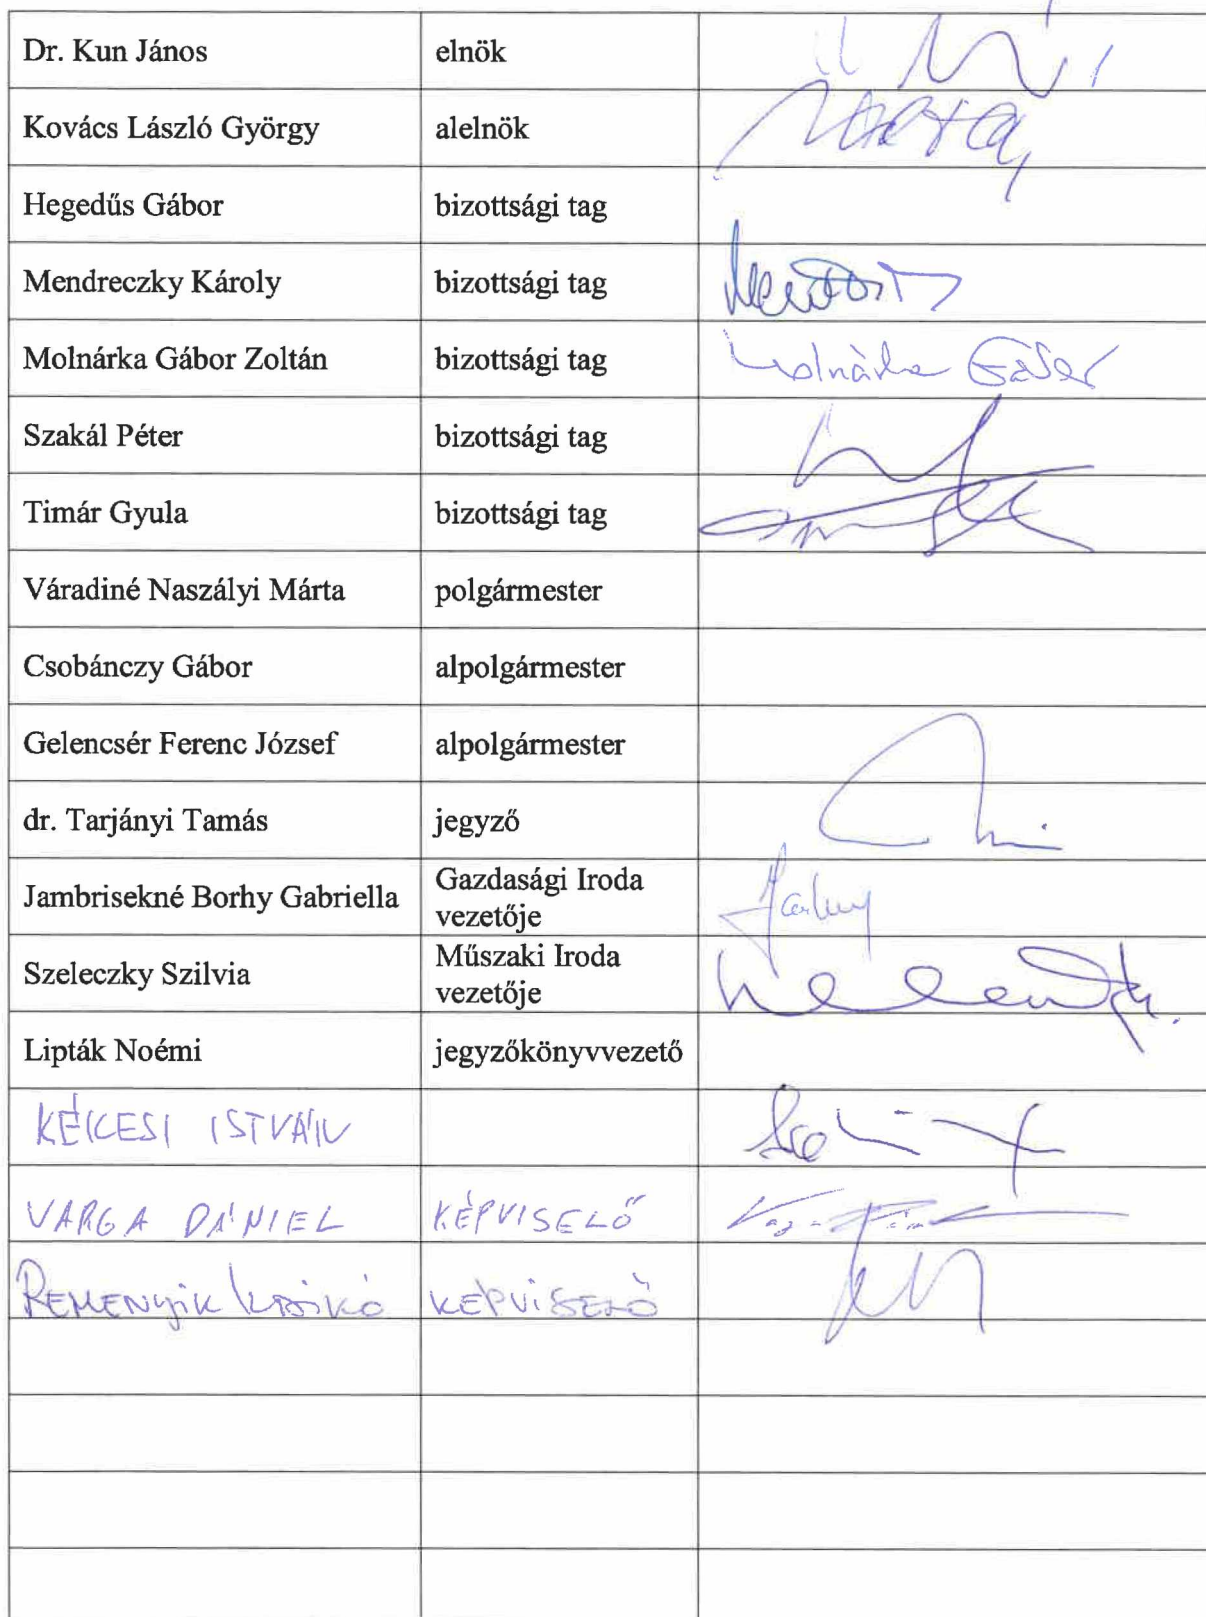 Dr. Kun János elnök
Kovács László György alelnök
Hegedűs Gábor bizottsági tag
Mendreczky Károly bizottsági tag
Molnárka Gábor Zoltán bizottsági tag Molnárka Gábor
Szakál Péter bizottsági tag
Timár Gyula bizottsági tag
Váradiné Naszályi Márta polgármester
Csobánczy Gábor alpolgármester
Gelencsér Ferenc József alpolgármester
dr. Tarjányi Tamás jegyző
Jambrisekné Borhy Gabriella Gazdasági Iroda
vezetője
Szeleczky Szilvia Műszaki Iroda
vezetője
Lipták Noémi jegyzőkönyvvezető
KÉKESI ISTVÁN
VARGA DÁNIEL KÉPVISELŐ
REMENYIK ILDIKÓ KÉPVISELŐ